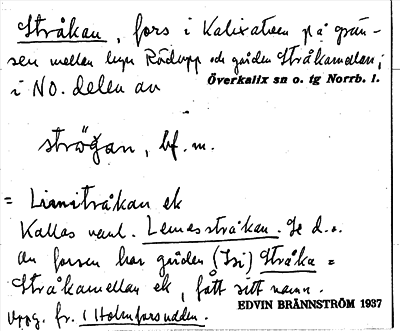 Stråkan, fors i Kalixälven på grän-
sen mellan byn Rödupp och gården Stråkanellan;
i NO. delen av
Överkalix sn o. tg Norrb. l.
strå̄ɡan, bf. m.
= Linnitråkan ek
Kallas vanl. Lemesstråkan. Se d.o.
Av forsen har gården (Isi) Stråka =
Stråkanellan ek, fått sitt namn.
Uppg. fr.
EDVIN BRÄNNSTRÖM 1937